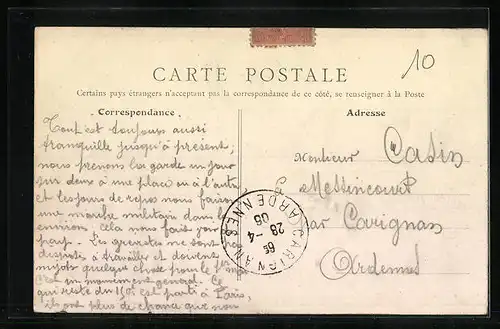 10
CARTE POSTALE
Certains pays étrangers n'acceptant pas la correspondance de ce côté, se renseigner à la Poste
Correspondance
Adresse
Tout est toujours aussi
tranquille jusqu'à présent;
nous prenons la garde un jour
sur deux à une place ou à l'autre
et les jours de repos nous faisons
une marche militaire dans les
environs, cela nous fait
Les grevistes ne sont pas
disposés à travailler et doivent
quelque chose pour le 1er mai
c'est un mouvement general. Ce
qui reste du est parti à Paris,
ils ont plus de chance que nous
Monsieur Casin
à Messincourt
par Carignan
Ardennes
CARIGNAN
ARDENNES
28 -4
06